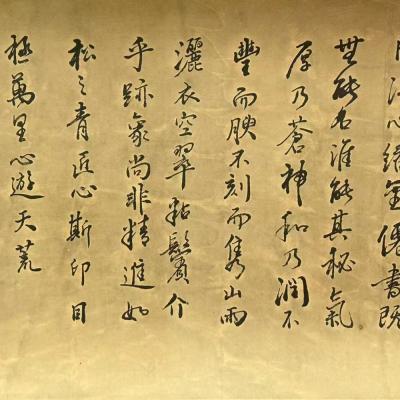 得心繙金僊書既
無能名誰能其秘氣
厚乃蒼神和乃潤不
豐而腴不刻而雋山雨
灑衣空翠粘鬢介
乎跡象尚非精進如
松之青匠心斯印目
極萬里心遊天荒